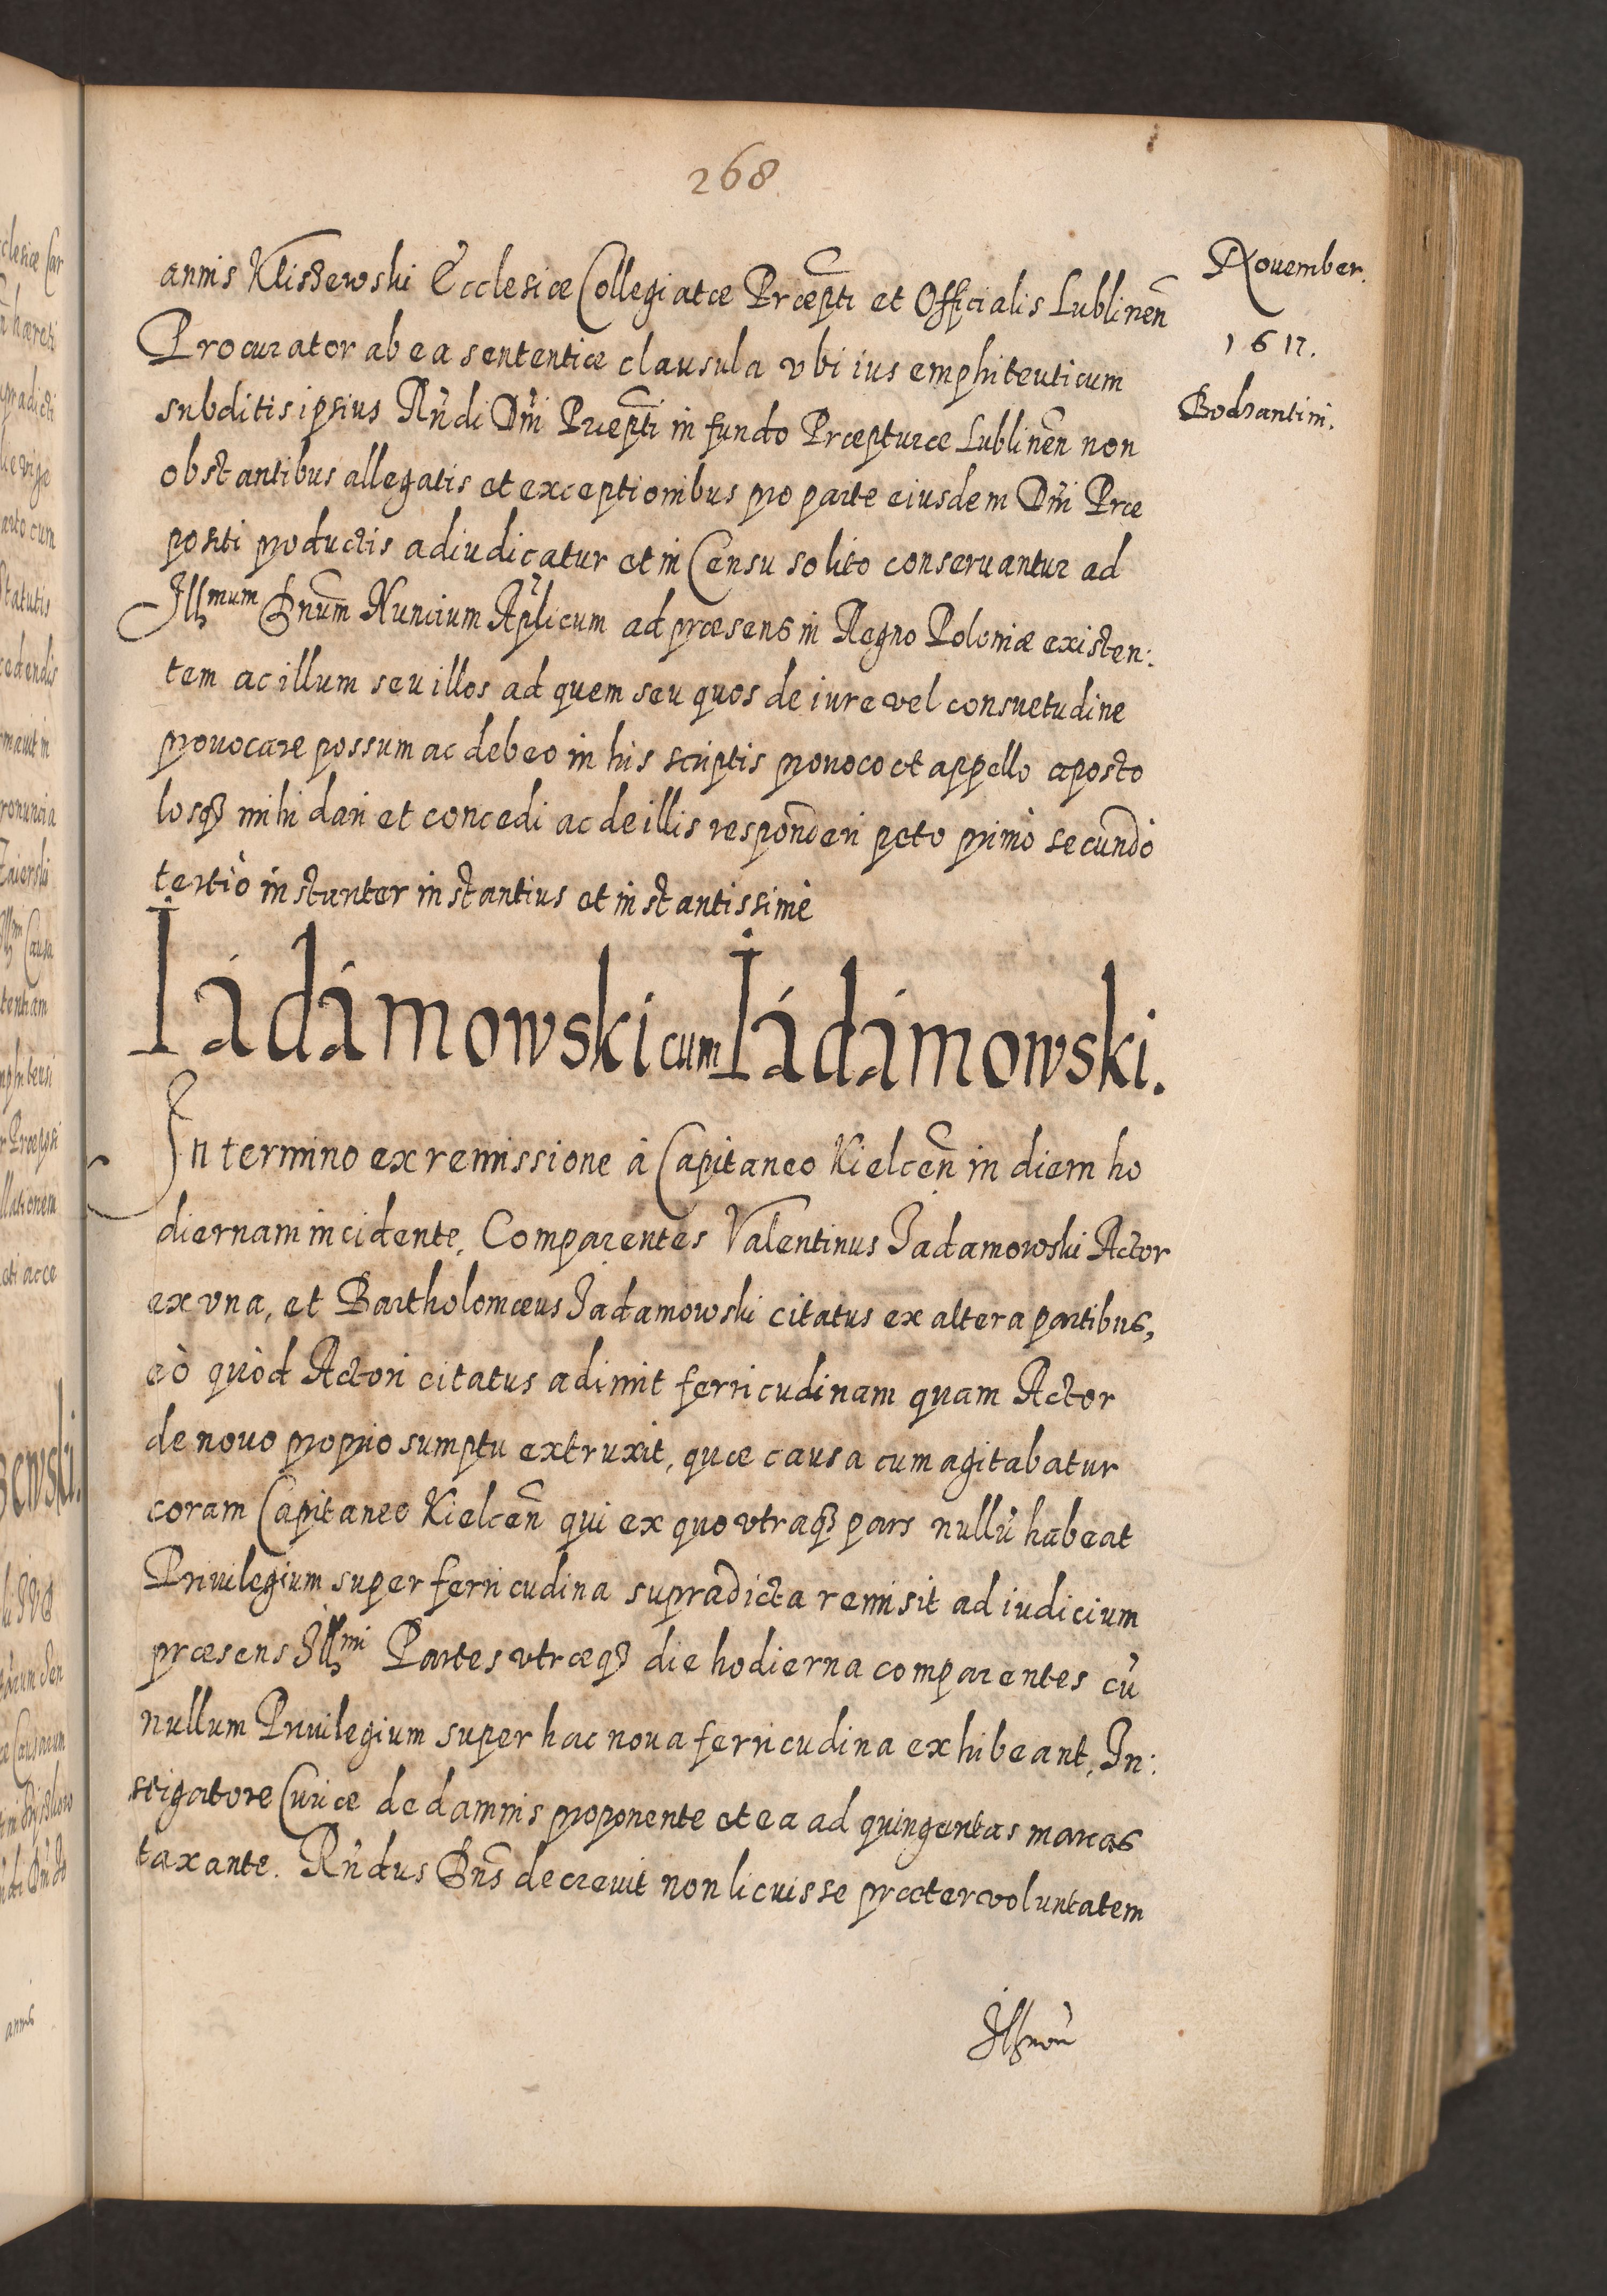 268
November.
1617.
Bodzantini.
annis Kliszewski Ecclesiæ Collegiatæ Præpti et Officialis Lublinen̄
Procurator ab ea sententiæ clausula vbi ius emphiteuticum
subditis ipsius Rn̄di Dn̄i Præpti in fundo Præpturæ Lublinen̄ non
obstantibus allegatis et exceptionibus pro parte eiusdem Dn̄i Præ
positi productis adiudicatur et in Censu solito conseruantur ad
Illmum Dnum̄ Nuncium Apl̄icum ad præsens in Regno Poloniæ existen:
tem ac illum seu illos ad quem seu quos de iure vel consuetudine
prouocare possum ac debeo in his scriptis prouoco et appello aposto
losq₃ mihi dari et concedi ac de illis responderi peto primò secundò
tertiò instanter instantius et instantissimè
Iádámowski cum Iádámowski.
In termino ex remissione à Capitaneo Kielcen̄ in diem ho
diernam incidente, Comparentes Valentinus Jadamowski Actor
ex vna, et Bartholomæus Jadamowski citatus ex altera partibus,
eò quòd Actori citatus adimit ferricudinam quam Actor
de nouo proprio sumptu extruxit, quæ causa cum agitabatur
coram Capitaneo Kielcen̄ qui ex quo vtraq₃ pars nullū habeat
Priuilegium super ferricudina supradicta remisit ad iudicium
præsens Illmi Partes vtræq₃ die hodierna comparentes cū
nullum Priuilegium super hac noua ferricudina exhibeant, In:
stigatore Curiæ de damnis proponente et ea ad quingentas marcas
taxante. Rn̄dus Dns̄ decreuit non licuisse præter voluntatem